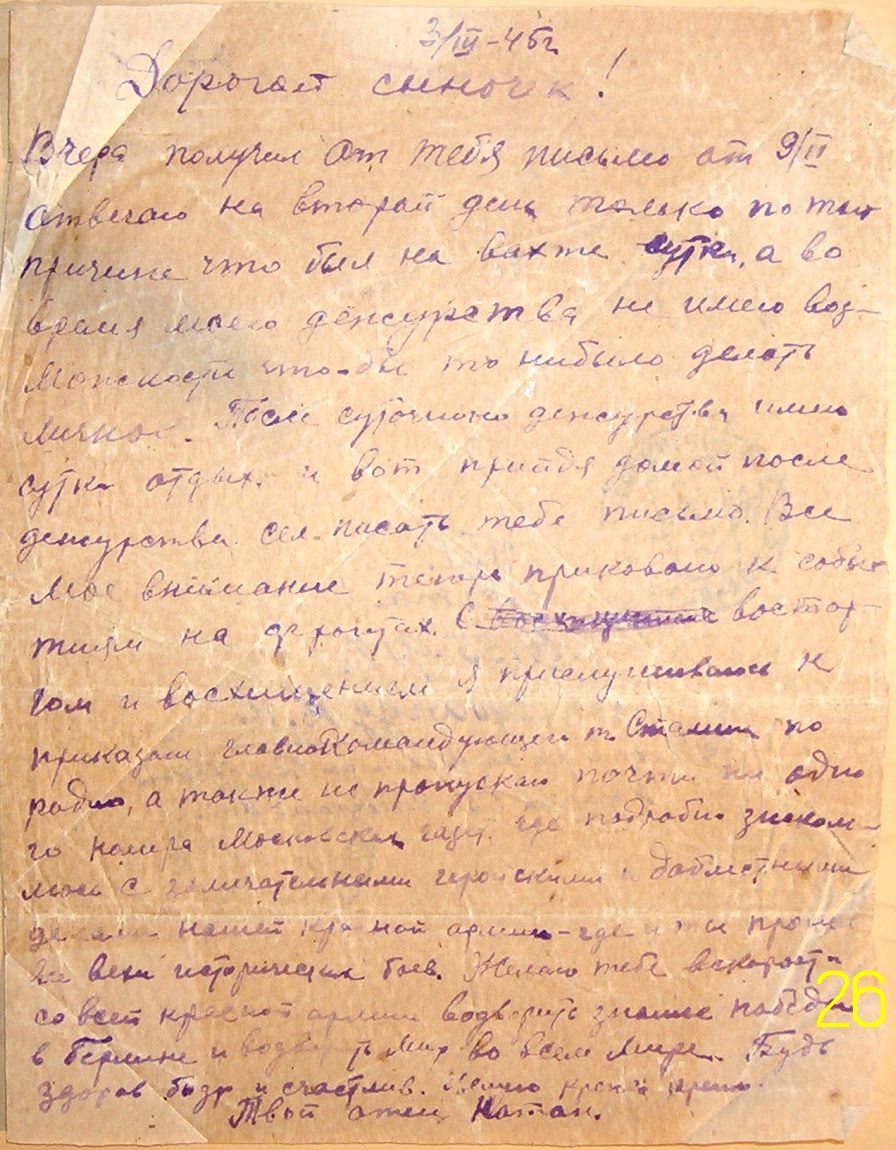 3/III-45г
Дорогой сыночек!
Вчера получил от тебя письмо от 9/II
отвечаю на второй день только по той
причине что был на вахте сутки, а во
время моего дежурства не имею воз-
можности что-бы то нибыло делать
личное. После суточного дежурства имею
сутки отдых. и вот прийдя домой после
дежурства сел писать тебе письмо. Все
мое внимание теперь приковано к собы-
тиям на фронтах. С восхищением востор-
гом и восхищением я прислушиваюсь к
приказам главнокомандующего т. Сталина по
радио, а также не пропускаю почти ни одно
го номера Московских газет. где подробно знаком-
люсь с замечательными геройскими и доблестными
делами нашей красной армии - где и ты
исторических боев. Желаю тебе вскорости
со всей красной армии водворить знамя победы
в Берлине и мир во всем мире. Будь
здоров бодр и счастлив. крепко крепко.
Твой отец Натан.
26